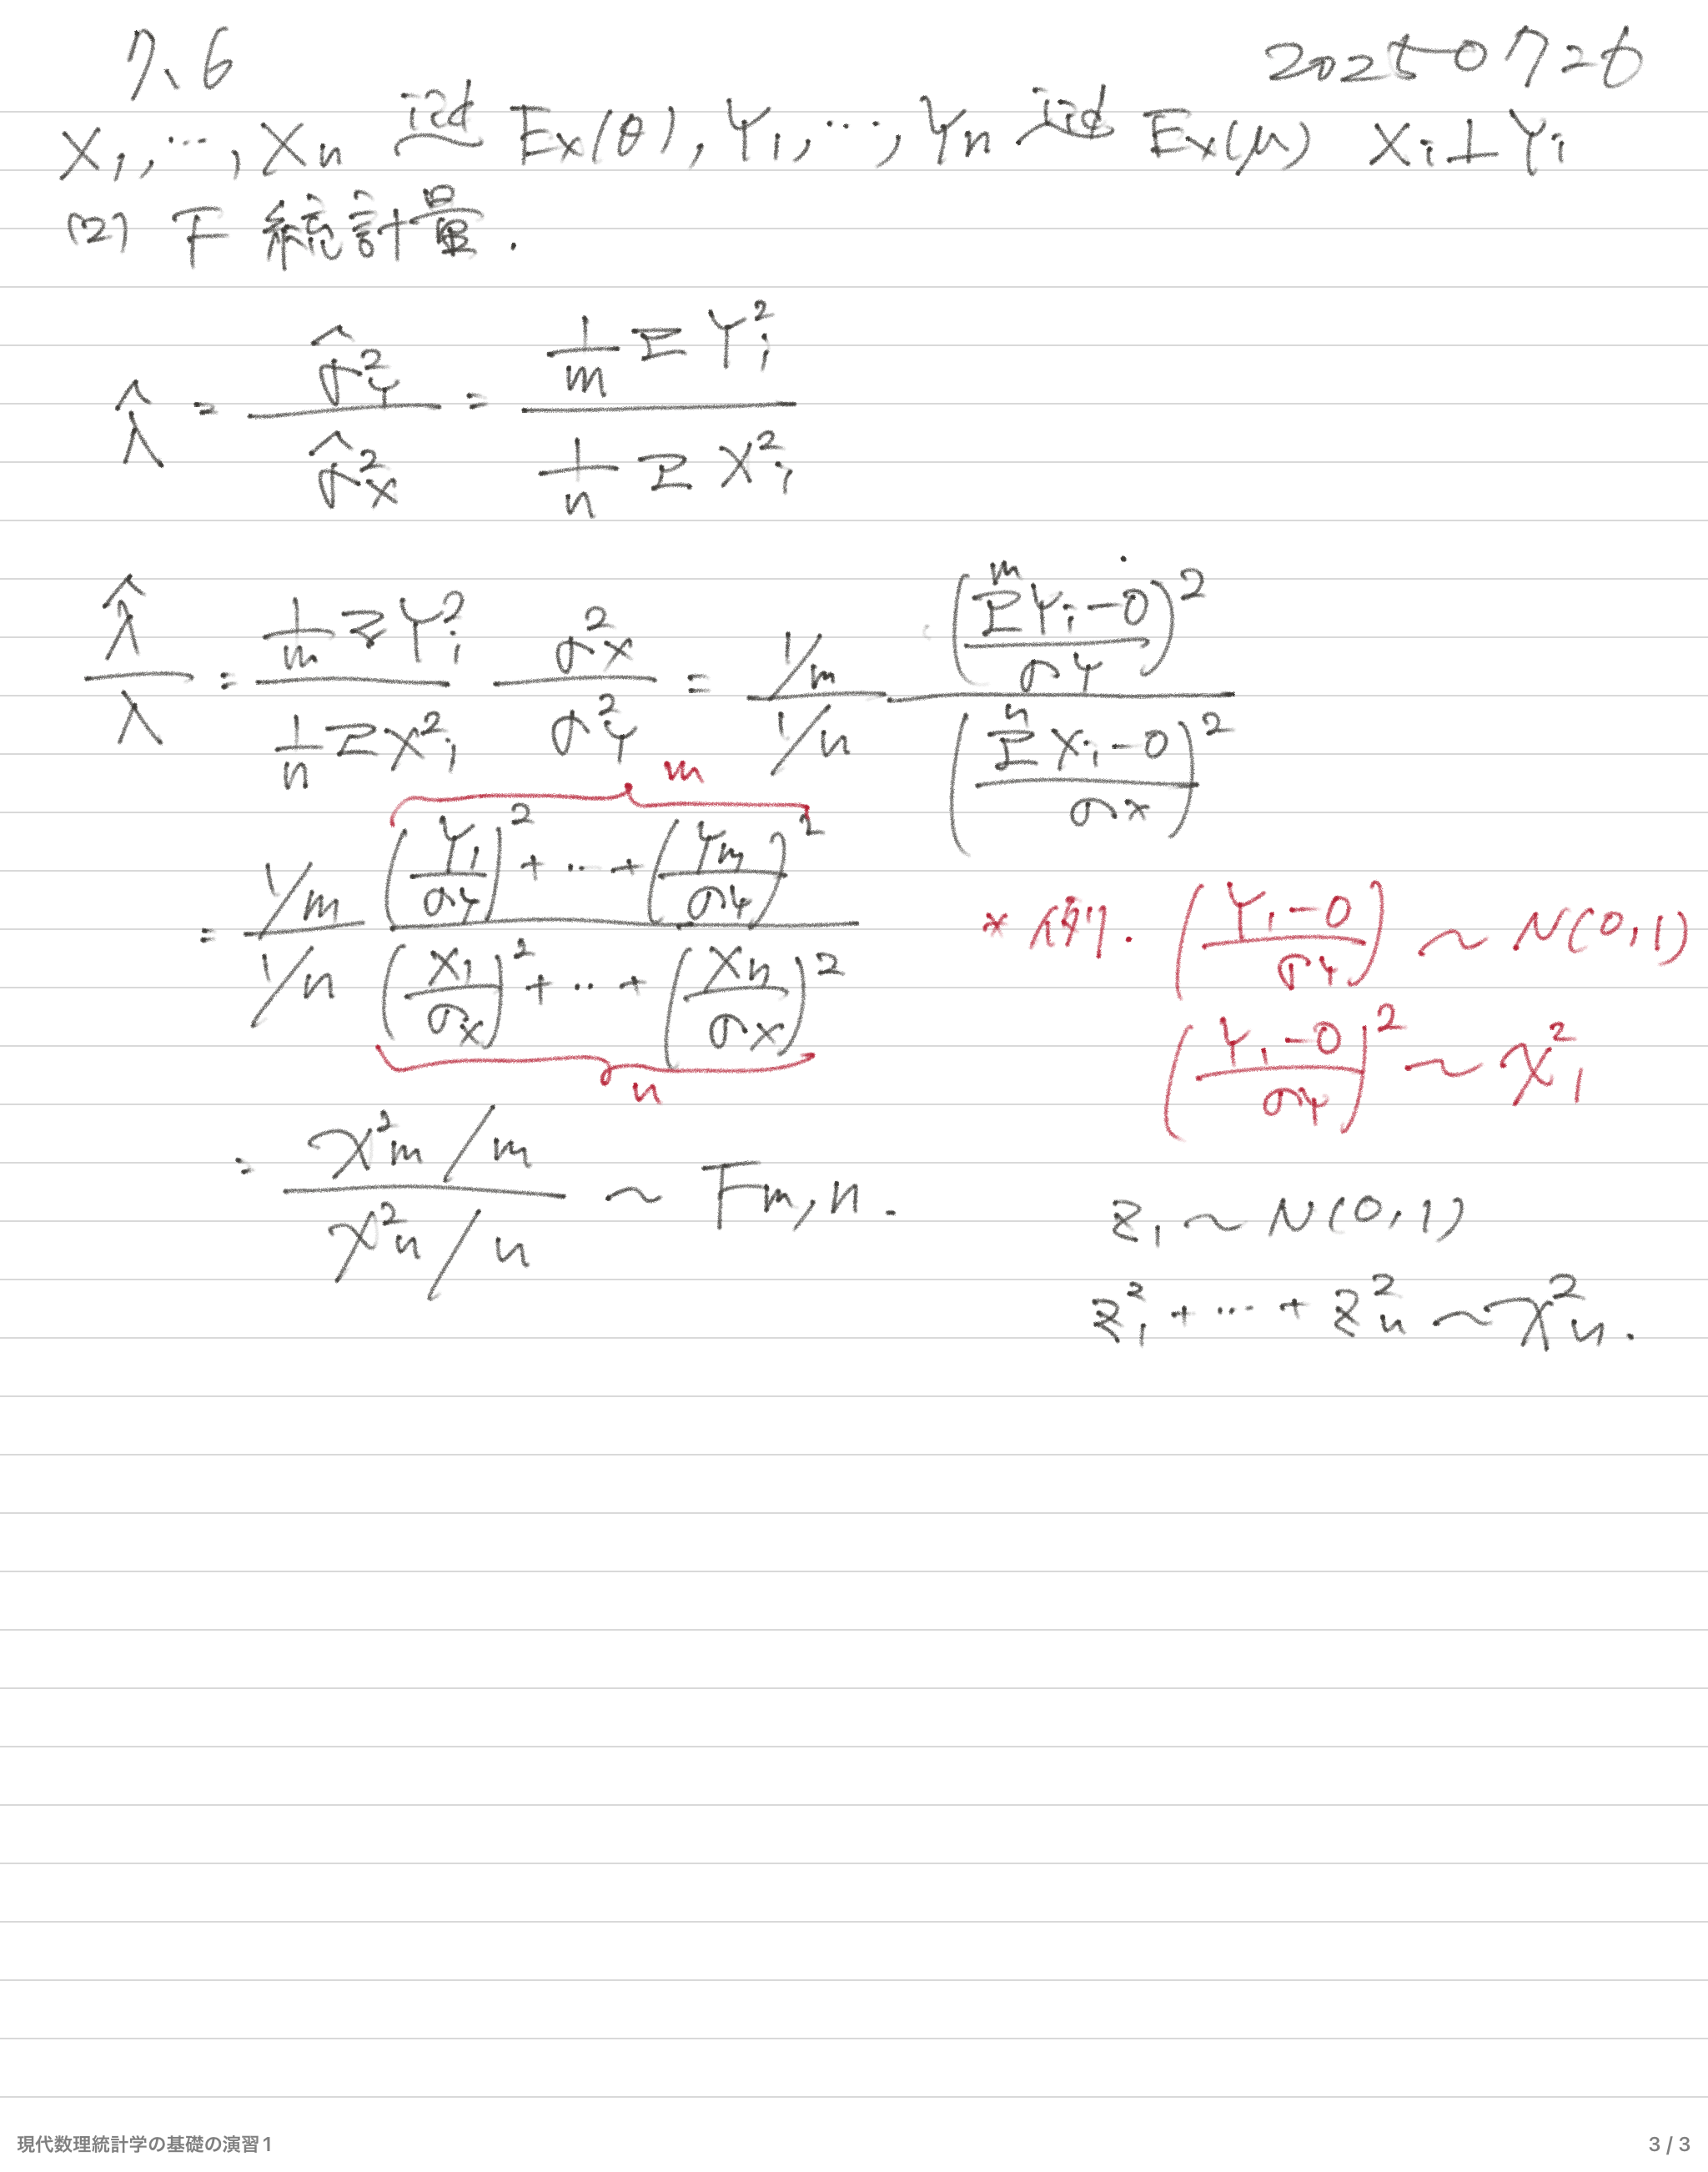 7.6 20250726
X₁, ⋯, Xₙ iid~ Ex(θ), Y₁, ⋯, Yₙ iid~ Ex(μ) Xᵢ⊥Yᵢ
(2) F 統計量.
λ̂ = σ̂²_Y / σ̂²_X = (1/m Σ Yᵢ²) / (1/n Σ Xᵢ²)
λ̂/λ = (1/m Σ Yᵢ²) / (1/n Σ Xᵢ²) σ²_X / σ²_Y = (1/m)/(1/n) ((Σ^m Yᵢ − 0)/σ_Y)² / ((Σ^n Xᵢ − 0)/σ_X)²
m
= (1/m)/(1/n) ((Y₁/σ_Y)² + ⋯ + (Y_m/σ_Y)²) / ((X₁/σ_X)² + ⋯ + (X_n/σ_X)²)
n
* 例. ((Y₁−0)/σ_Y) ~ N(0,1)
((Y₁−0)/σ_Y)² ~ χ²₁
= (χ²_m/m) / (χ²_n/n) ~ F_m,n.
Z₁ ~ N(0,1)
Z₁² + ⋯ + Z_n² ~ χ²_n.
現代数理統計学の基礎の演習1
3 / 3